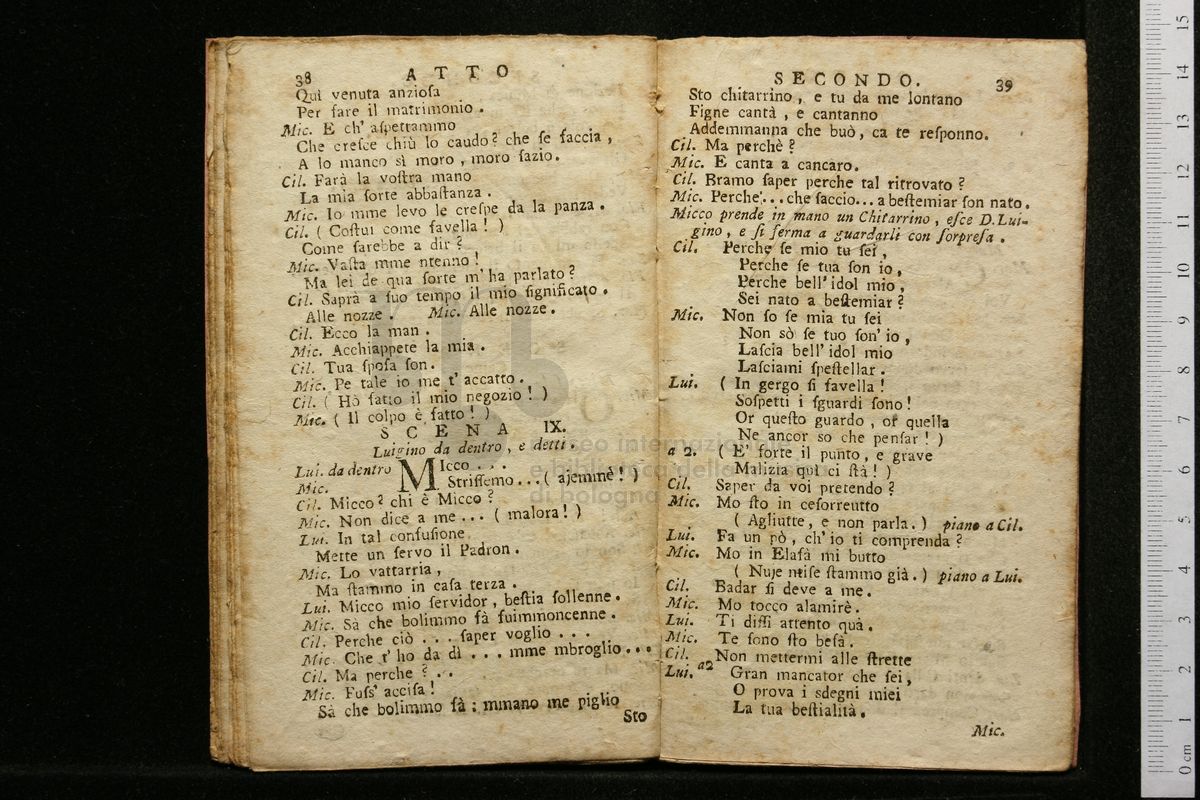 38 ATTO
Quì venuta anzioſa
Per fare il matrimonio.
Mic. E ch' aſpettammo
Che creſce chiù lo caudo? che ſe faccia,
A lo manco sì moro, moro ſazio.
Cil. Farà la voſtra mano
La mia ſorte abbaſtanza.
Mic. Io mme levo le creſpe da la panza.
Cil. (Coſtui come favella!)
Come ſarebbe a dir?
Mic. Vaſta mme ntenno!
Ma lei de qua ſorte m' ha parlato?
Cil. Saprà a ſuo tempo il mio ſignificato.
Alle nozze. Mic. Alle nozze.
Cil. Ecco la man.
Mic. Acchiappete la mia.
Cil. Tua ſpoſa ſon.
Mic. Pe tale io me t' accatto.
Cil. (Hò fatto il mio negozio!)
Mic. (Il colpo è fatto!)
SCENA IX.
Luigino da dentro, e detti.
Lui. da dentro MIcco...
Mic. Striſſemo...(ajemmè!)
Cil. Micco? chi è Micco?
Mic. Non dice a me... (malora!)
Lui. In tal confuſione
Mette un ſervo il Padron.
Mic. Lo vattarria,
Ma ſtammo in caſa terza.
Lui. Micco mio ſervidor, beſtia ſollenne.
Mic. Sà che bolimmo fà fuimmoncenne.
Cil. Perche ciò... ſaper voglio...
Mic. Che t' ho da dì... mme mbroglio...
Cil. Ma perche?..
Mic. Fuſs' acciſa!
Sà che bolimmo fà: mmano me piglio
Sto
SECONDO. 39
Sto chitarrino, e tu da me lontano
Figne cantà, e cantanno
Addemmanna che buò, ca te reſponno.
Cil. Ma perchè?
Mic. E canta a cancaro.
Cil. Bramo ſaper perche tal ritrovato?
Mic. Perche'...che faccio...a beſtemiar ſon nato.
Micco prende in mano un Chitarrino, eſce D. Lui-
gino, e ſi ferma a guardarli con ſorpreſa.
Cil. Perche ſe mio tu ſei,
Perche ſe tua ſon io,
Perche bell' idol mio,
Sei nato a beſtemiar?
Mic. Non ſo ſe mia tu ſei
Non sò ſe tuo ſon' io,
Laſcia bell' idol mio
Laſciami ſpeſtellar.
Lui. (In gergo ſi favella!
Soſpetti i ſguardi ſono!
Or queſto guardo, or quella
Ne ancor so che penſar!)
a 2. (E' forte il punto, e grave
Malizia quì ci ſtà!)
Cil. Saper da voi pretendo?
Mic. Mo ſto in ceſorreutto
(Agliutte, e non parla.) piano a Cil.
Lui. Fa un pò, ch' io ti comprenda?
Mic. Mo in Elafà mi butto
(Nuje miſe ſtammo già.) piano a Lui.
Cil. Badar ſi deve a me.
Mic. Mo tocco alamirè.
Lui. Ti diſſi attento quà.
Mic. Te ſono ſto befà.
Cil. Non mettermi alle ſtrette
Lui. a2 Gran mancator che ſei,
O prova i sdegni miei
La tua beſtialità.
Mic.
museo internazionale
e biblioteca della musica
di bologna
15
14
13
12
11
10
9
8
7
6
5
4
3
2
1
0 cm